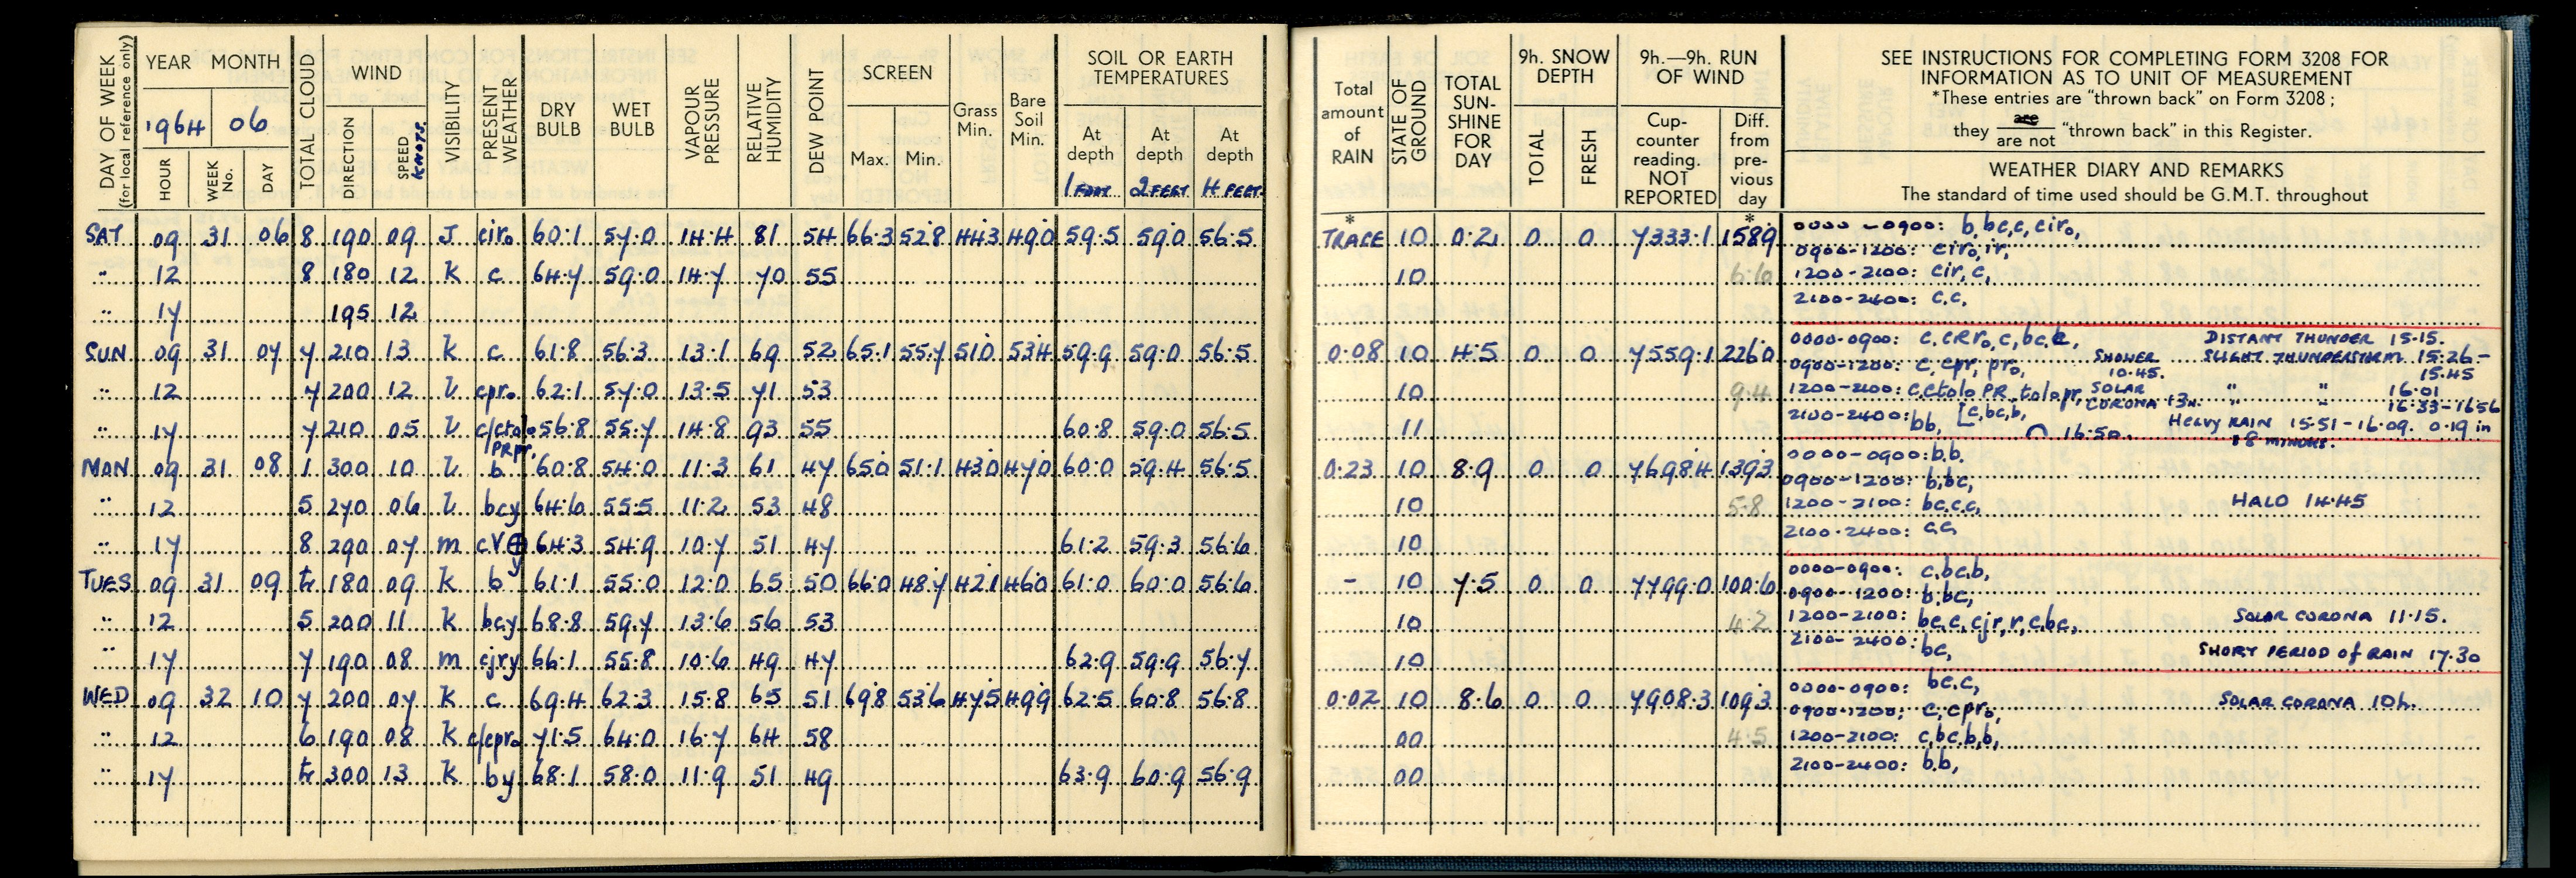 DAY OF WEEK (for local reference only) YEAR MONTH TOTAL CLOUD WIND VISIBILITY PRESENT WEATHER DRY BULB WET BULB VAPOUR PRESSURE RELATIVE HUMIDITY DEW POINT SCREEN Grass Min. Bare Soil Min. SOIL OR EARTH TEMPERATURES
1964 06
HOUR WEEK No. DAY DIRECTION SPEED KNOTS. Max. Min. At depth 1 FOOT At depth 2 FEET At depth 4 FEET
SAT 09 31 06 8 190 09 J ciro 60.1 57.0 14.4 81 54 66.3 52.8 44.3 49.0 59.5 59.0 56.5
" 12 8 180 12 k c 64.7 59.0 14.7 70 55
" 17 195 12
SUN 09 31 07 7 210 13 k c 61.8 56.3 13.1 69 52 65.1 55.7 51.0 53.4 59.9 59.0 56.5
" 12 7 200 12 l cpro 62.1 57.0 13.5 71 53
" 17 7 210 05 l 56.8 55.7 14.8 93 55 60.8 59.0 56.5
MON 09 31 08 1 300 10 l b 60.8 54.0 11.3 61 47 65.0 51.1 43.0 47.0 60.0 59.4 56.5
" 12 5 270 06 l bcy 64.6 55.5 11.2 53 48
" 17 8 290 07 m cV⊕y 64.3 54.9 10.7 51 47 61.2 59.3 56.6
TUES 09 31 09 tr 180 09 k b 61.1 55.0 12.0 65 50 66.0 48.7 42.1 46.0 61.0 60.0 56.6
" 12 5 200 11 k bcy 68.8 59.7 13.6 56 53
" 17 7 190 08 m cjry 66.1 55.8 10.6 49 47 62.9 59.9 56.7
WED 09 32 10 7 200 07 k c 69.4 62.3 15.8 65 51 69.8 53.6 47.5 49.9 62.5 60.8 56.8
" 12 6 190 08 k c/cpro 71.5 64.0 16.7 64 58
" 17 tr 300 13 k by 68.1 58.0 11.9 51 49 63.9 60.9 56.9
Total amount of RAIN STATE OF GROUND TOTAL SUN-SHINE FOR DAY 9h. SNOW DEPTH 9h.—9h. RUN OF WIND
TOTAL FRESH Cup-counter reading. NOT REPORTED Diff. from pre-vious day
SEE INSTRUCTIONS FOR COMPLETING FORM 3208 FOR
INFORMATION AS TO UNIT OF MEASUREMENT
*These entries are "thrown back" on Form 3208;
they are / are not "thrown back" in this Register.
WEATHER DIARY AND REMARKS
The standard of time used should be G.M.T. throughout
* *
TRACE 10 0.2 0 0 7333.1 158.9 0000-0900: b,bc,c,ciro,
0900-1200: ciro,ir,
10 6.6 1200-2100: cir,c,
2100-2400: c,c,
0.08 10 4.5 0 0 7559.1 226.0 0000-0900: c,cRro,c,bc,c, DISTANT THUNDER 15.15.
0900-1200: c,cpr,pro, SHOWER 10.45. SLIGHT THUNDERSTORM 15.26-15.45
10 9.4 1200-2100: c,ctolo PR,tolo,pr, SOLAR CORONA 13h. " " 16.01
" " 16.33-1656
11 2100-2400: bb, [c,bc,b, ⌒ 16.50. HEAVY RAIN 15.51-16.09. 0.19 in
18 MINUTES.
0.23 10 8.9 0 0 7698.4 139.3 0000-0900: b.b.
0900-1200: b,bc,
10 5.8 1200-2100: bc,c,c, HALO 14.45
10 2100-2400: c,c,
- 10 7.5 0 0 7799.0 100.6 0000-0900: c,bc,b,
0900-1200: b,bc,
10 4.2 1200-2100: bc,c,cjr,r,c,bc, SOLAR CORONA 11.15.
10 2100-2400: bc, SHORT PERIOD of RAIN 17.30
0.02 10 8.6 0 0 7908.3 109.3 0000-0900: bc,c, SOLAR CORONA 10h.
0900-1200: c,cpro,
00 4.5 1200-2100: c,bc,b,b,
00 2100-2400: b,b,